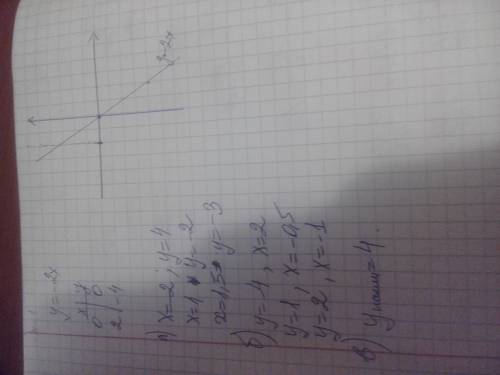 y=-2x
x | y
0 | 0
2 | -4
а) x=-2; y=4
x=1 y=-2
x=1,5 y=-3
б) y=-4, x=2
y=1, x=-0,5
y=2, x=-1
в) y наиб=4.
y=-2x